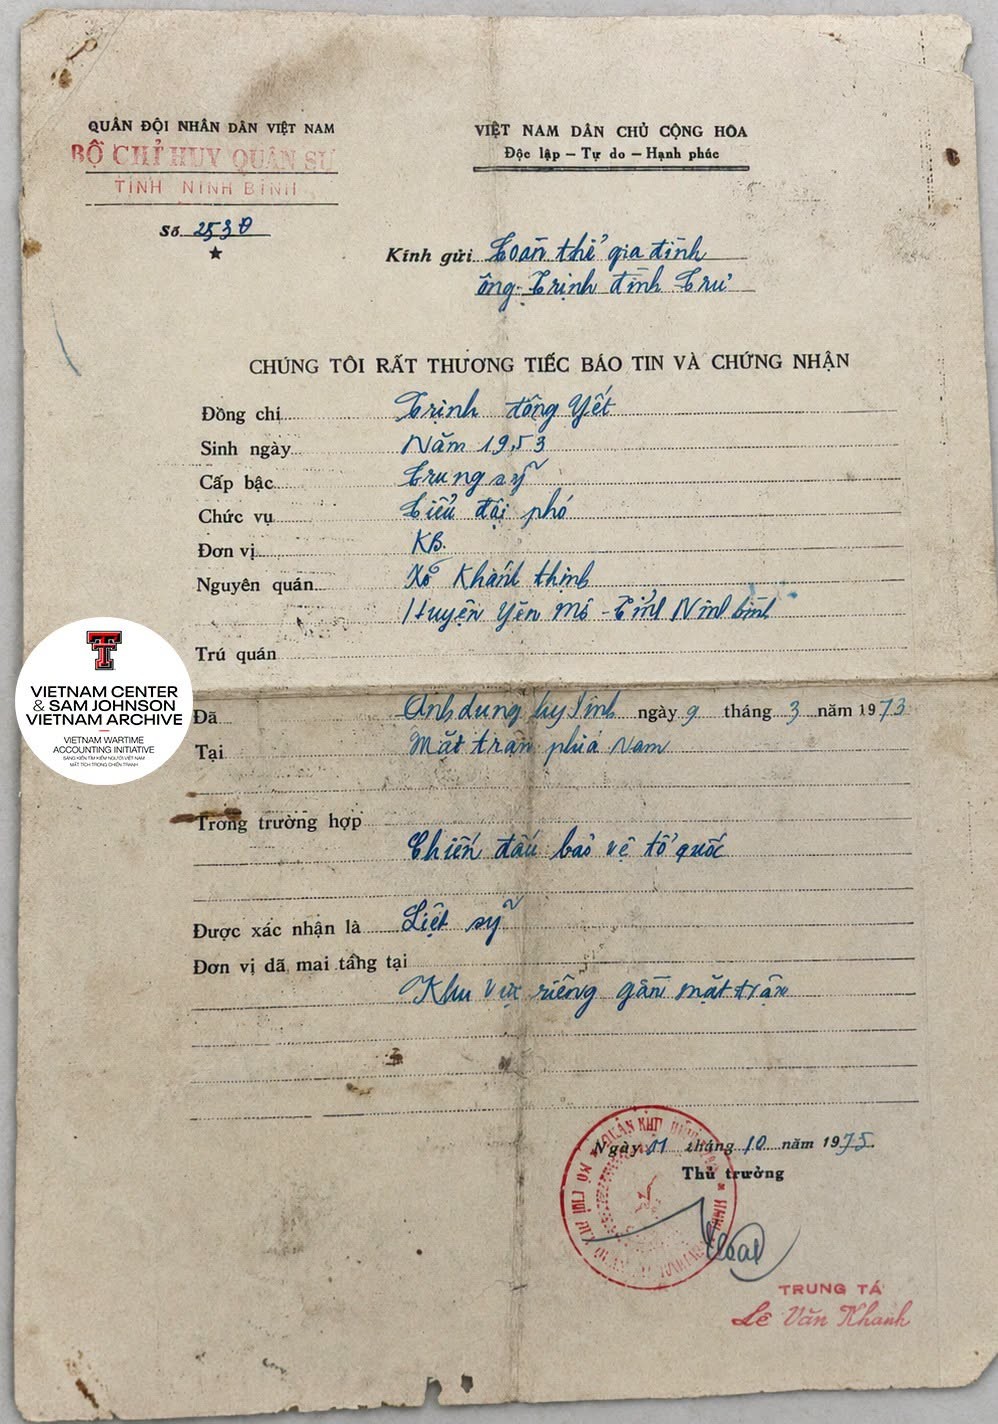 QUÂN ĐỘI NHÂN DÂN VIỆT NAM
BỘ CHỈ HUY QUÂN SỰ
TỈNH NINH BÌNH
Số 2530
VIỆT NAM DÂN CHỦ CỘNG HÒA
Độc lập – Tự do – Hạnh phúc
Kính gửi Toàn thể gia đình
ông Trịnh đình Trư
CHÚNG TÔI RẤT THƯƠNG TIẾC BÁO TIN VÀ CHỨNG NHẬN
Đồng chí Trịnh đông Yết
Sinh ngày Năm 1953
Cấp bậc Trung sỹ
Chức vụ Tiểu đội phó
Đơn vị KB.
Nguyên quán Xã Khánh thịnh
Huyện Yên Mô - Tỉnh Ninh bình
Trú quán
Đã Anh dung hy Sinh ngày 9 tháng 3 năm 1973
Tại Mặt trận phía Nam
Trong trường hợp
Chiến đấu bảo vệ tổ quốc
Được xác nhận là Liệt sỹ
Đơn vị đã mai táng tại
Khu vực riêng gần mặt trận
Ngày 11 tháng 10 năm 1975
Thủ trưởng
TRUNG TÁ
Lê Văn Khanh
VIETNAM CENTER
& SAM JOHNSON
VIETNAM ARCHIVE
VIETNAM WARTIME
ACCOUNTING INITIATIVE
SÁNG KIẾN TÌM KIẾM NGƯỜI VIỆT NAM
MẤT TÍCH TRONG CHIẾN TRANH